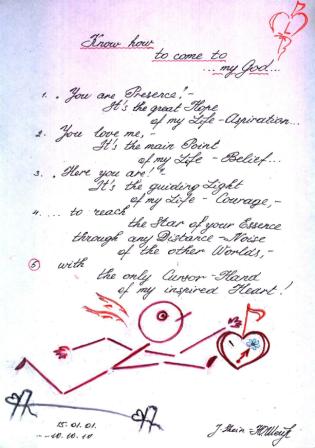 Know how
to come to
... my God...
1. . You are Presence! -
It's the great Hope
of my Life - Aspiration...
2. You love me, -
It's the main Point
of my Life - Belief...
3. . Here you are! -
It's the guiding Light
of my Life - Courage, -
4. ... to reach
the Star of your Essence
through any Distance - Noise
of the other Worlds, -
5 with
the only Cursor - Hand
of my inspired Heart!
15.01.01.
10.10.10